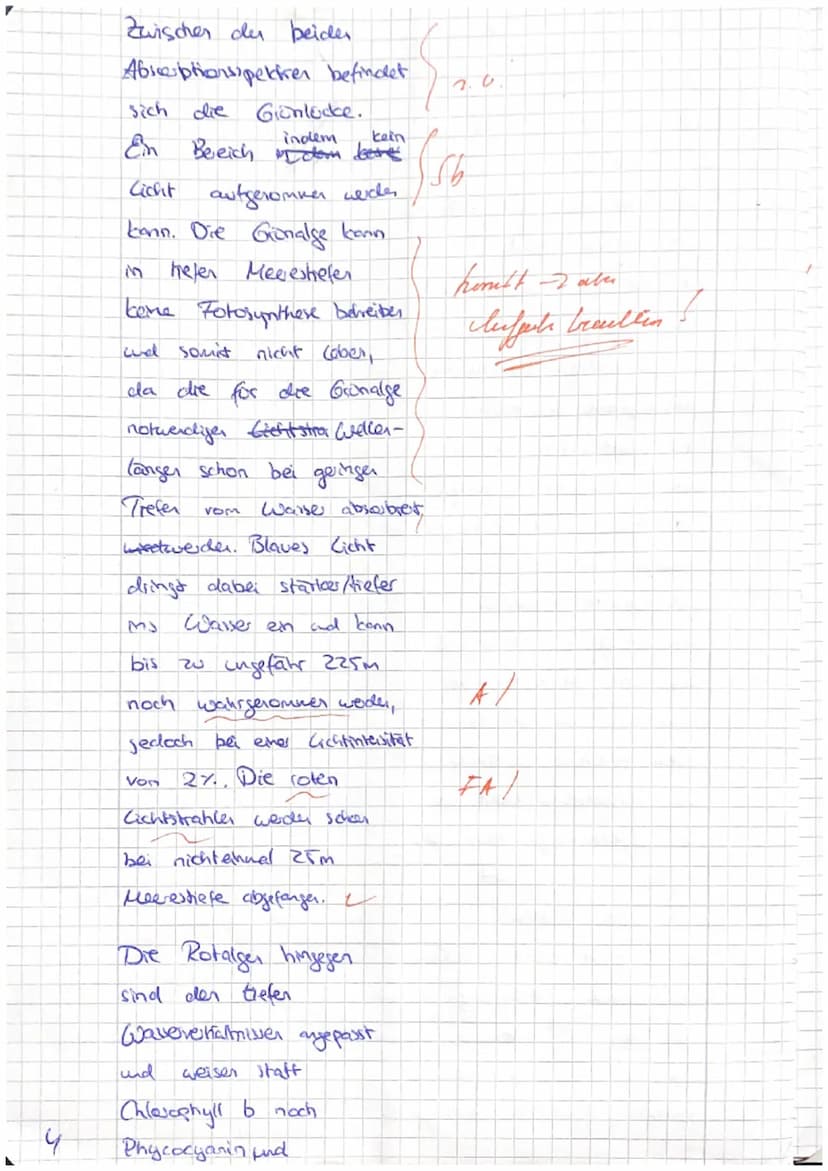 Zwischen den beiden
Absorptionsspektren befindet
sich die Grünlücke.
n.v.
Ein Bereich indem kein
Licht aufgenommen werden
Sb
kann. Die Grünalge kann
in tiefen Meerestiefen
keine Fotosynthese betreiben
und somit nicht leben,
da die für die Grünalge
notwendigen Lichtstra Wellen-
längen schon bei geringen
Tiefen vom Wasser absorbiert,
werden. Blaues Licht
dringt dabei stärker/tiefer
ins Wasser ein und kann
bis zu ungefähr 225m
noch wahrgenommen werden,
A/
jedoch bei einer Lichtintensität
von 2%. Die roten
FA/
Lichtstrahlen werden schon
bei nichteinmal 25m
Meerestiefe abgefangen.
Die Rotalgen hingegen
sind den tiefen
Wasserverhältnissen angepasst
und weisen statt
Chlorophyll b noch
4
Phycocyanin und